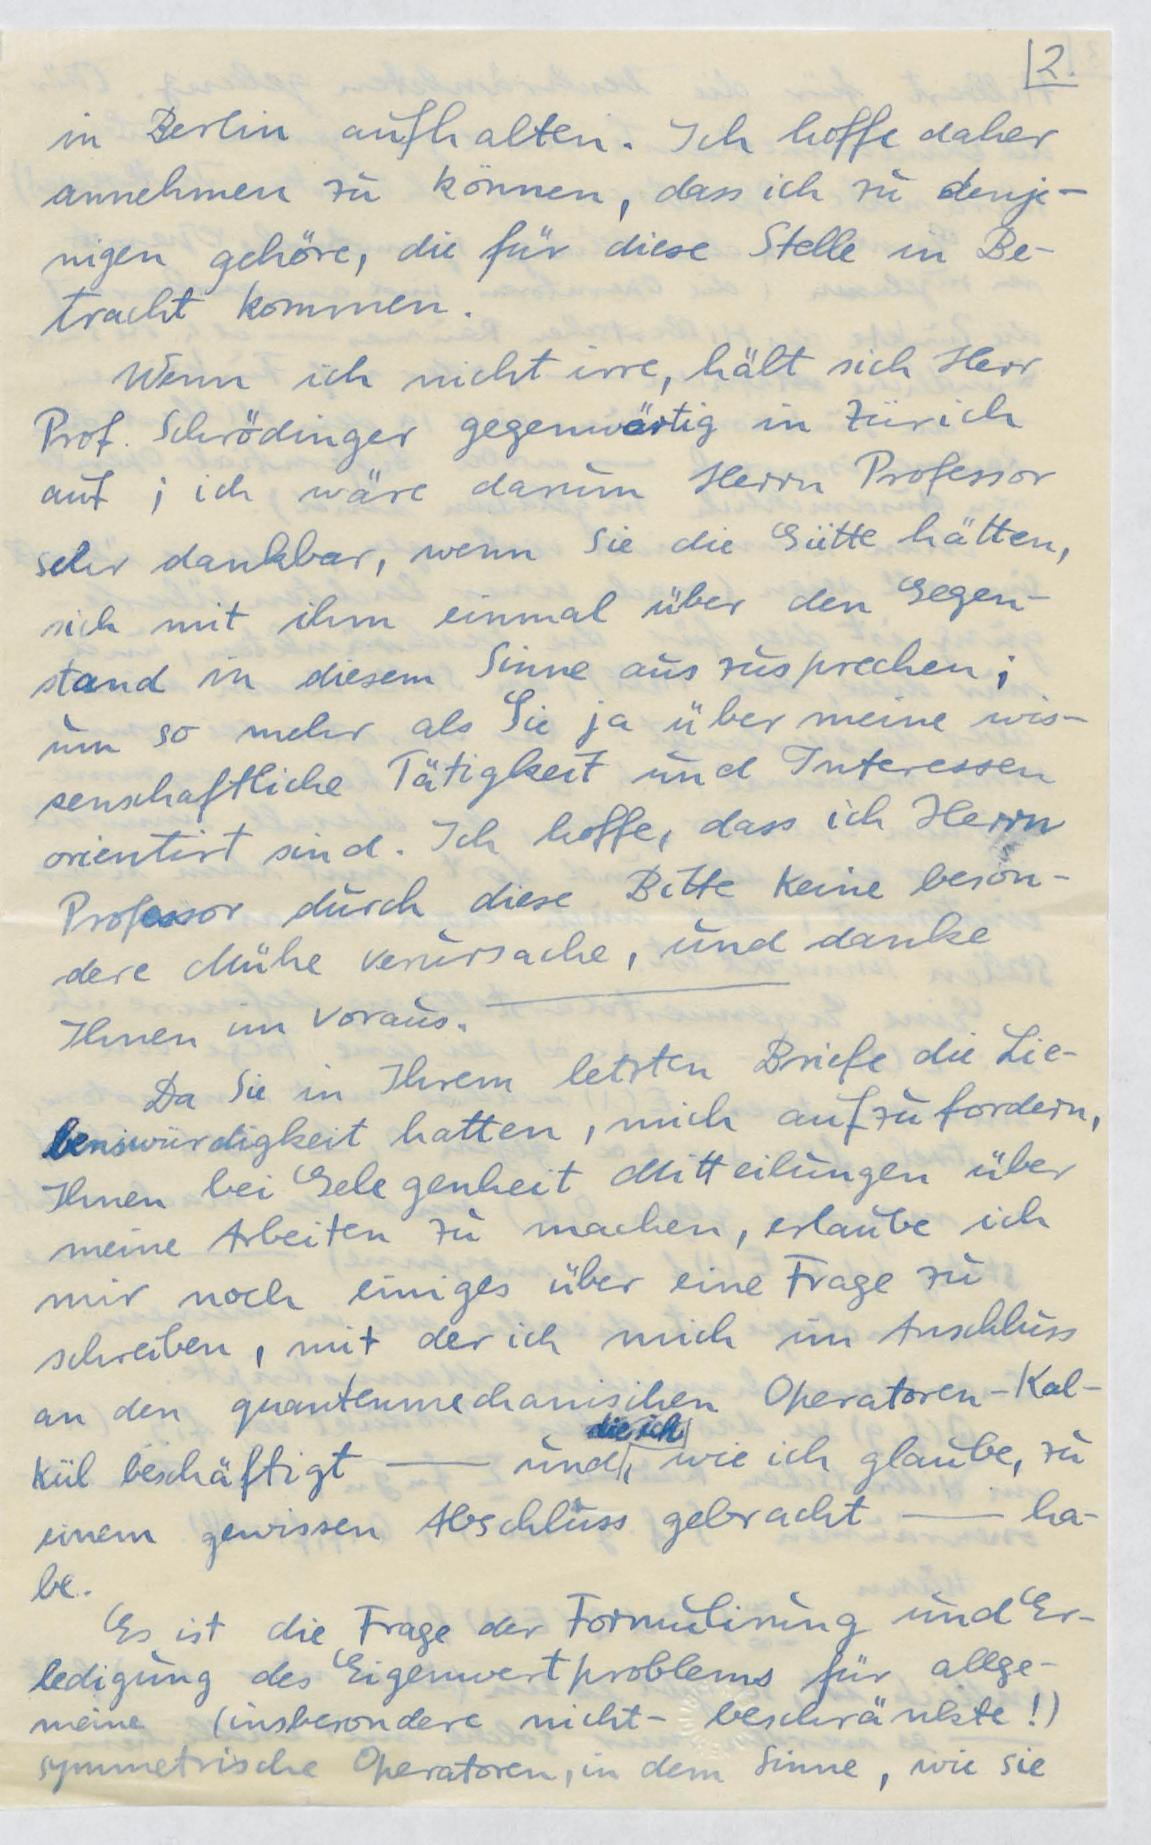 2.
in Berlin aufhalten. Ich hoffe daher
annehmen zu können, dass ich zu denje-
nigen gehöre, die für diese Stelle in Be-
tracht kommen.
Wenn ich nicht irre, hält sich Herr
Prof. Schrödinger gegenwärtig in Zürich
auf; ich wäre darum Herrn Professor
sehr dankbar, wenn Sie die Gütte hätten,
sich mit ihm einmal über den Gegen-
stand in diesem Sinne auszusprechen;
um so mehr als Sie ja über meine wis-
senschaftliche Tätigkeit und Interessen
orientirt sind. Ich hoffe, dass ich Herrn
Professor durch diese Bitte keine beson-
dere Mühe verursache, und danke
Ihnen im voraus.
Da Sie in Ihrem letzten Briefe die Lie-
benswürdigkeit hatten, mich aufzufordern,
Ihnen bei Gelegenheit Mitteilungen über
meine Arbeiten zu machen, erlaube ich
mir noch einiges über eine Frage zu
schreiben, mit der ich mich im Anschluss
an den quantenmechanischen Operatoren-Kal-
die ich
kül beschäftigt — und, wie ich glaube, zu
einem gewissen Abschluss gebracht — ha-
be.
Es ist die Frage der Formulirung und Er-
ledigung des Eigenwertproblems für allge-
meine (insbesondere nicht-beschränkte!)
symmetrische Operatoren, in dem Sinne, wie sie